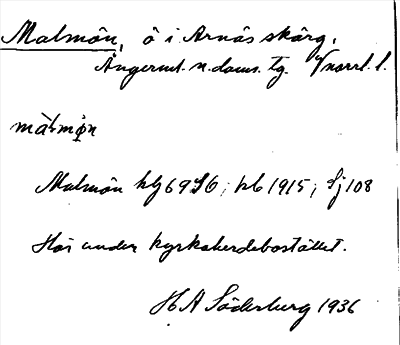 Malmön, ö i Arnäs skärg.
Ångerml. n. doms. tg. V norrl. l.
màlmön
Malmön kg 69 S6; hb 1915; Sj 108
Hör under kyrkoherdebostället.
H A Söderberg 1936